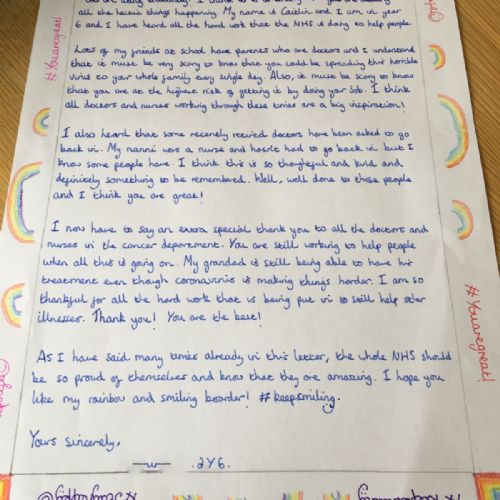 all the hectic things happening. My name is Caitlin and I am in year
6 and I have heard all the hard work that the NHS is doing to help people.
Lots of my friends at school have parents who are doctors and I understand
that it must be very scary to know that you could be spreading this horrible
virus to your whole family every single day. Also, it must be scary to know
that you are at the highest risk of getting it by doing your job. I think
all doctors and nurses working through these times are a big inspiration!
I also heard that some recently retired doctors have been asked to go
back in. My nanni was a nurse and hasn't had to go back in but I
know some people have. I think this is so thoughtful and kind and
definitely something to be remembered. Well, well done to those people
and I think you are great!
I now have to say an extra special thank you to all the doctors and
nurses in the cancer department. You are still working to help people
when all this is going on. My grandad is still being able to have his
treatment even though coronavirus is making things harder. I am so
thankful for all the hard work that is being put in to still help other
illnesses. Thank you! You are the best!
As I have said many times already in this letter, the whole NHS should
be so proud of themselves and know that they are amazing. I hope you
like my rainbow and smiling boarder! #keepsmiling.
Yours sincerely,
2Y6.
#Youaregreat!
#Youaregreat!